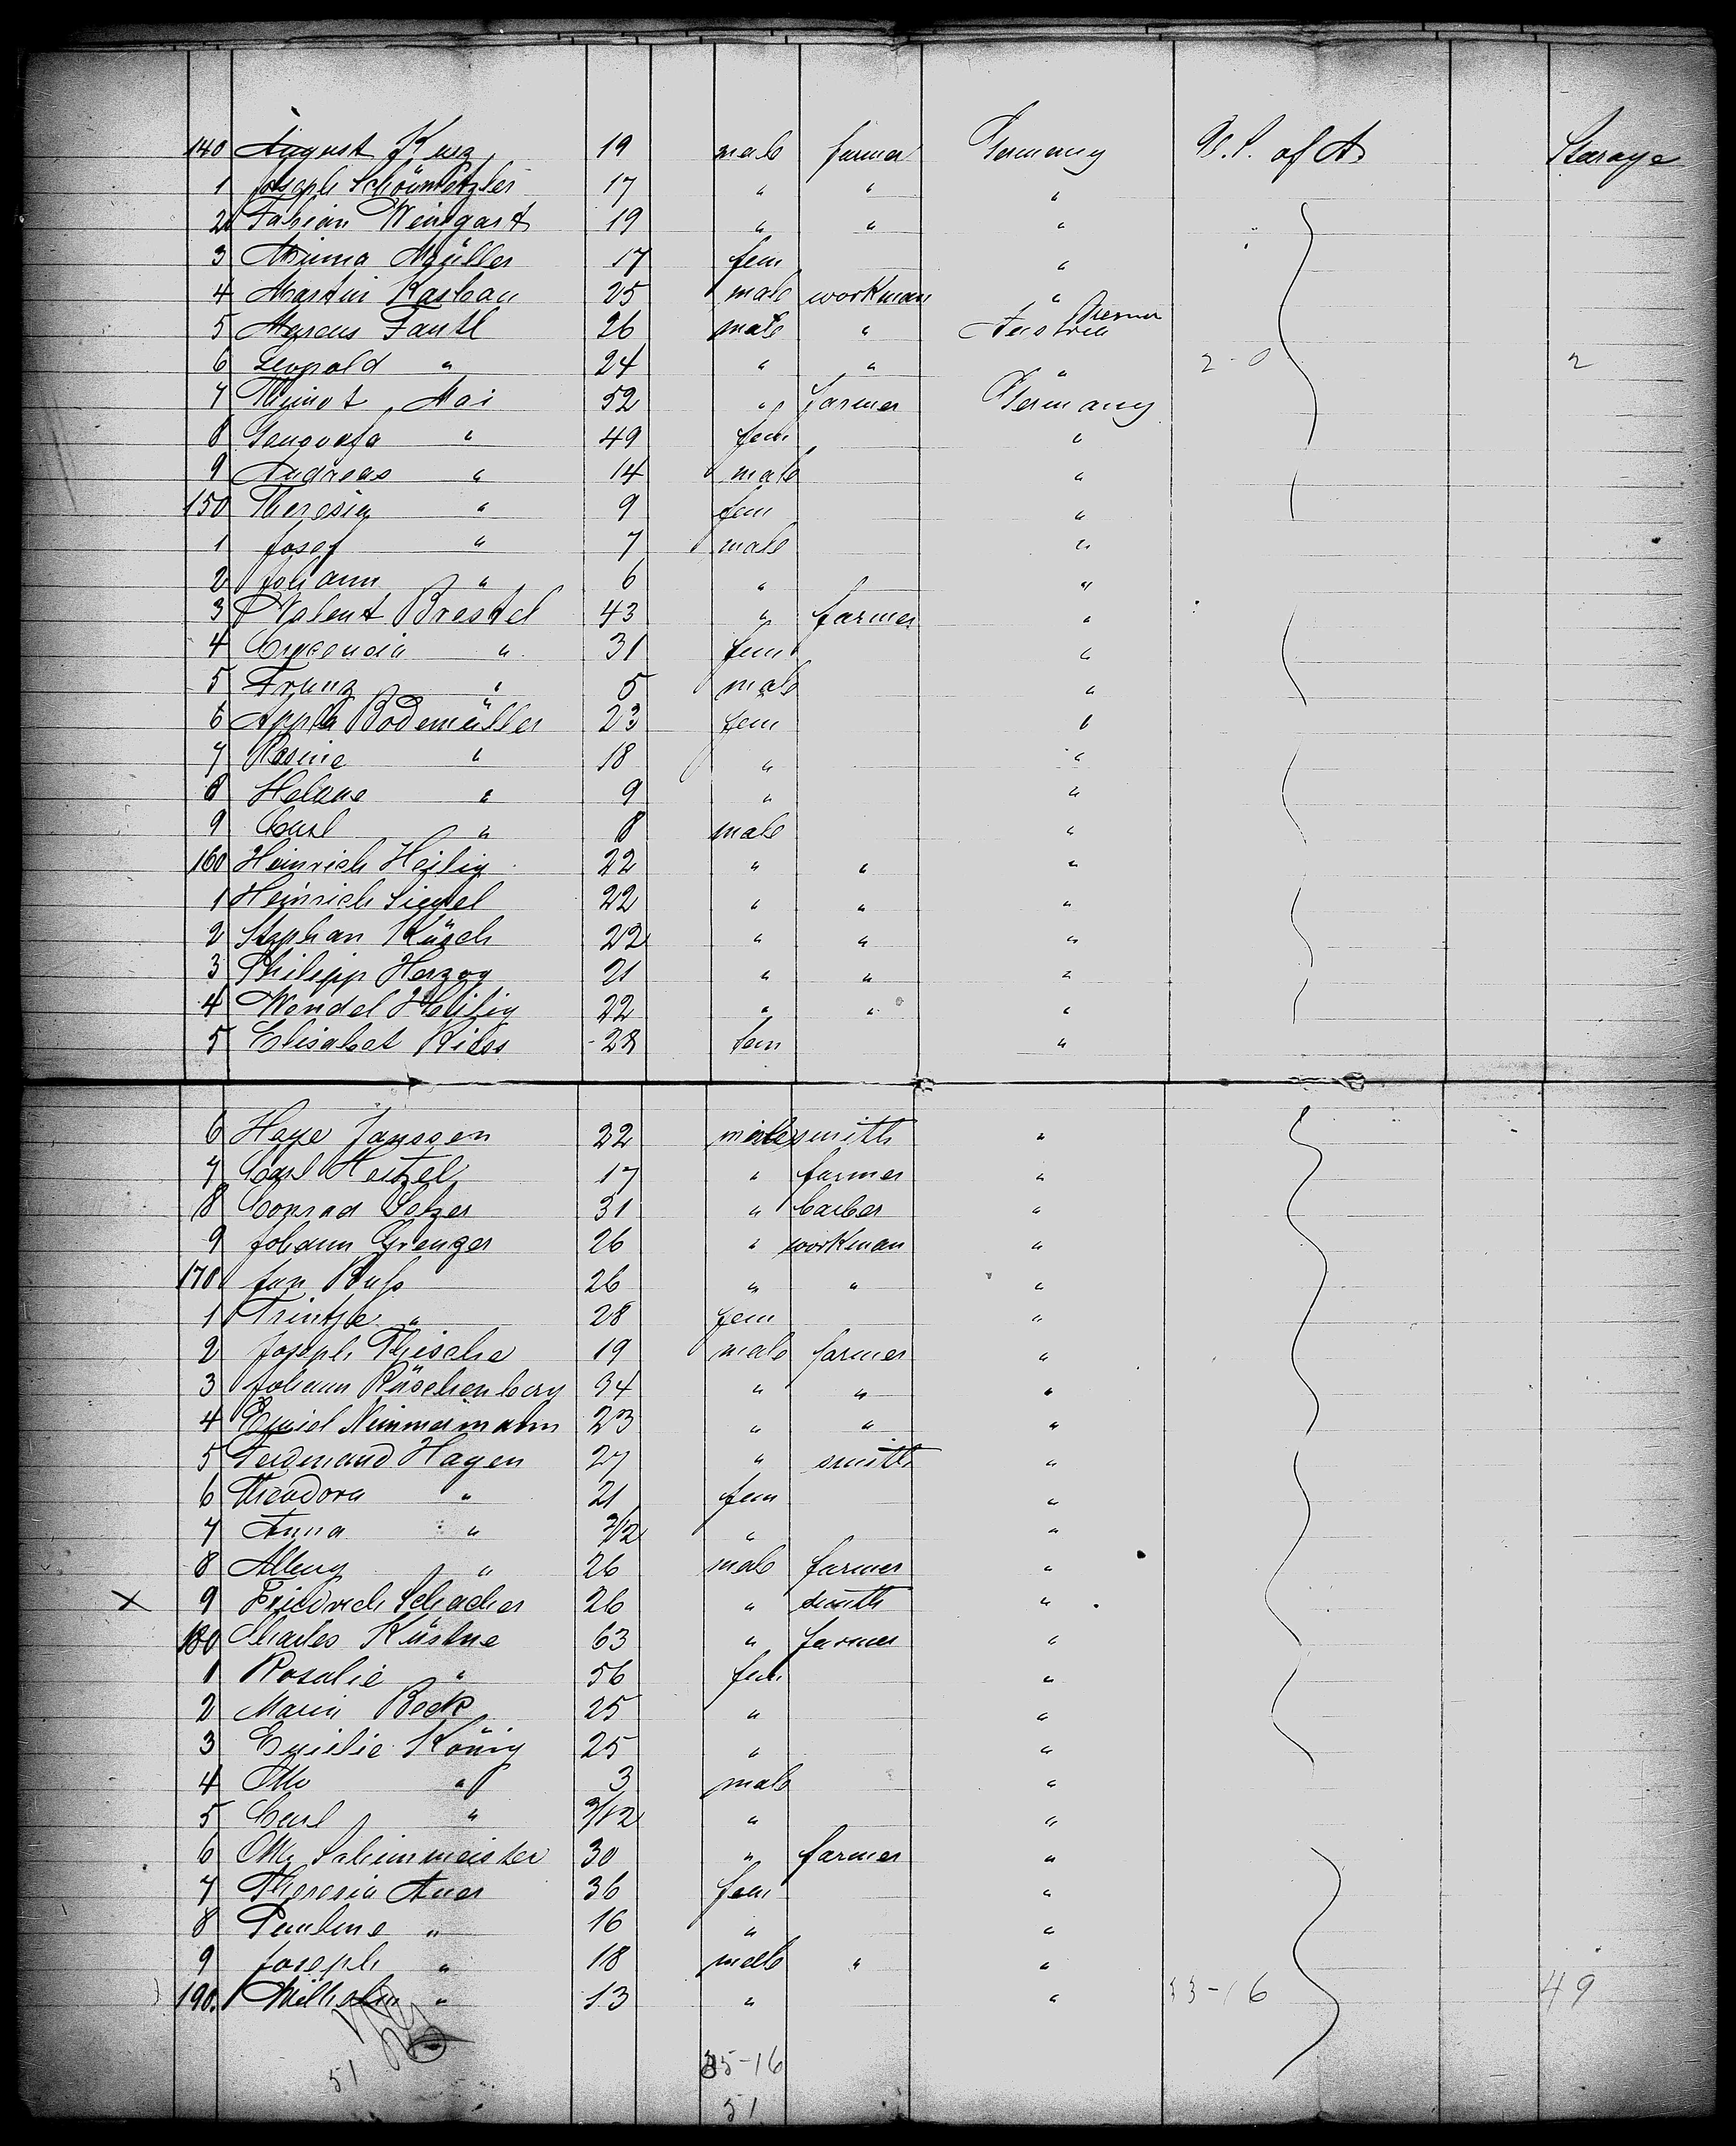 140 August Kurz 19 male farmer Germany U.S. of A. Stearage
1 Joseph 17 " " "
2 Fabian Weingart 19 " " "
3 Minna Müller 17 fem "
4 Martin Kaslau 25 male workman "
5 Marcus Fantl 26 male " Austria
6 Leopold " 24 " " " 2-0 2
7 Mai 52 " farmer Germany
8 Genovefa " 49 fem "
9 Andreas " 14 male "
150 Theresia " 9 fem "
1 Josef " 7 male "
2 Johann " 6 " "
3 Valent Brestel 43 " farmer "
4 " 31 fem "
5 Franz " 5 male "
6 Bodemüller 23 fem "
7 Rosine " 18 " "
8 Helene " 9 " "
9 Carl " 8 male "
160 Heinrich Heilig 22 " " "
1 Heinrich Siegel 22 " " "
2 Stephan Küsch 22 " " "
3 Philipp Herzog 21 " " "
4 Wendel Heilig 22 " " "
5 Elisabet Riess 28 fem "
6 Haye Janssen 22 male smith "
7 Carl Hetzel 17 " farmer "
8 Conrad Selzer 31 " barber "
9 Johann Grenzer 26 " workman "
170 Jan Buss 26 " " "
1 Trintje " 28 fem "
2 Joseph 19 male farmer "
3 Johann Rüschenberg 34 " " "
4 23 " " "
5 Ferdinand Hagen 27 " smith "
6 Theodora " 21 fem "
7 Anna " /12 " "
8 " 26 male farmer "
X 9 Friedrich Schacher 26 " smith "
180 Charles Küstne 63 " farmer "
1 Rosalie " 56 fem "
2 Maria Beck 25 " "
3 Emilie König 25 " "
4 Otto " 3 male "
5 Carl " /12 " "
6 Otto Schimmeister 30 " farmer "
7 Theresia Auer 36 fem "
8 Pauline " 16 " "
9 Joseph " 18 male " "
190. Wilhelm " 13 " " 33-16 49
35-16
51 51